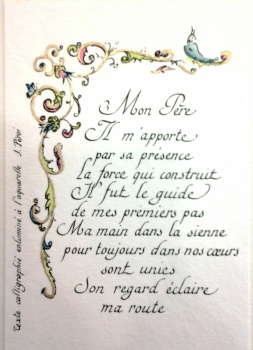 Mon Père
Il m'apporte
par sa présence
la force qui construit
Il fut le guide
de mes premiers pas
Ma main dans la sienne
pour toujours dans nos cœurs
sont unies
Son regard éclaire
ma route
Texte calligraphié enluminé à l'aquarelle J.